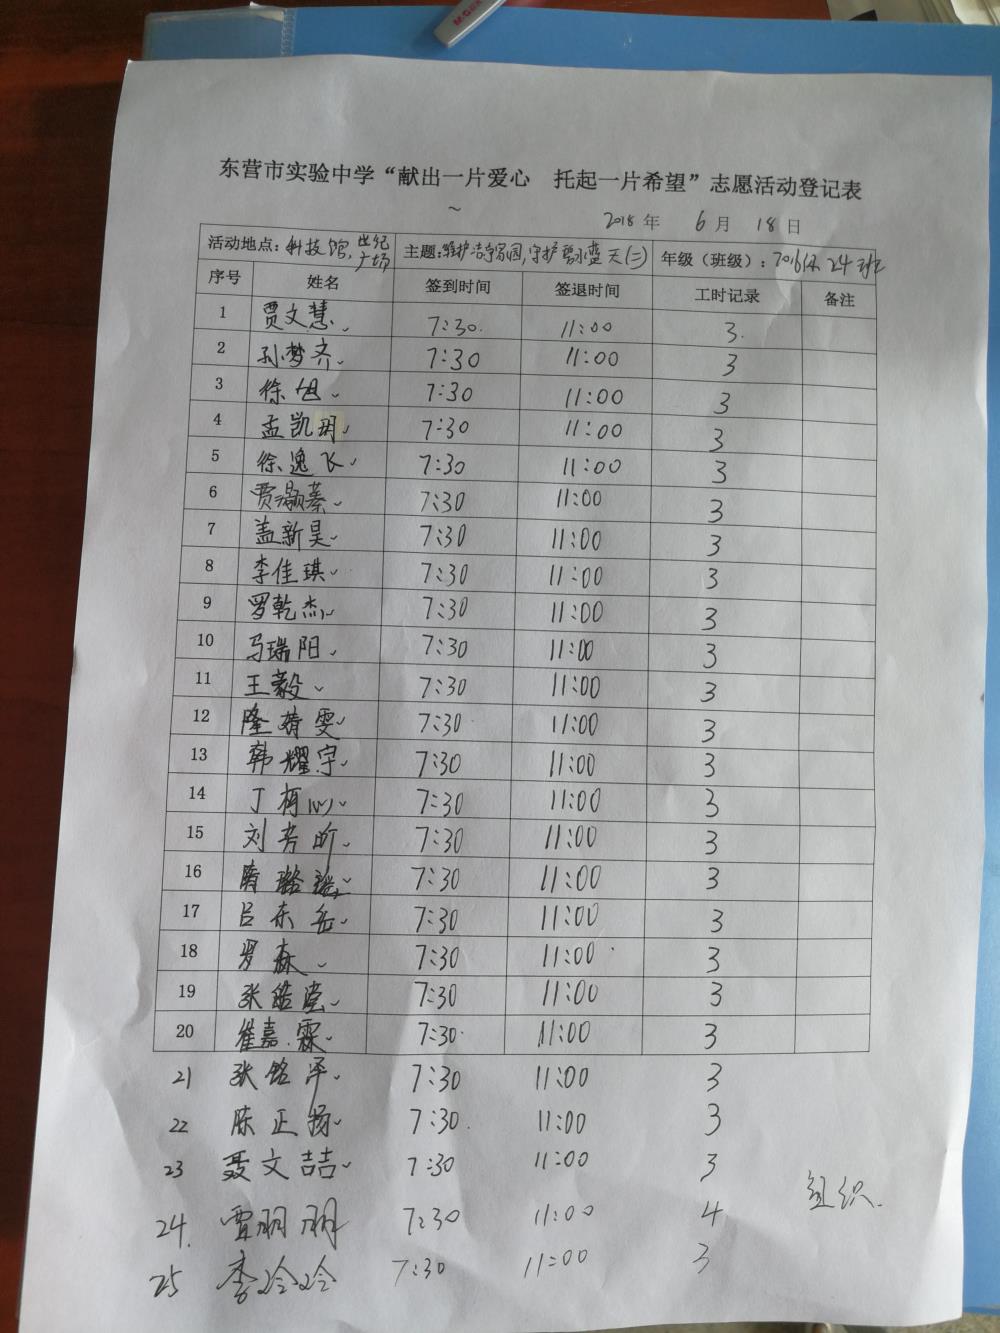 东营市实验中学“献出一片爱心 托起一片希望”志愿活动登记表
2018年 6月 18日
活动地点：科技馆,世纪广场 主题：维护洁净家园,守护碧水蓝天(三) 年级（班级）：2016级24班
序号 姓名 签到时间 签退时间 工时记录 备注
1 贾文慧 7:30 11:00 3
2 孙梦齐 7:30 11:00 3
3 徐旭 7:30 11:00 3
4 孟凯玥 7:30 11:00 3
5 徐逸飞 7:30 11:00 3
6 贾灏蓁 7:30 11:00 3
7 盖新昊 7:30 11:00 3
8 李佳琪 7:30 11:00 3
9 罗乾杰 7:30 11:00 3
10 马瑞阳 7:30 11:00 3
11 王毅 7:30 11:00 3
12 隆靖雯 7:30 11:00 3
13 韩耀宇 7:30 11:00 3
14 丁栴心 7:30 11:00 3
15 刘芳昕 7:30 11:00 3
16 7:30 11:00 3
17 吕东岳 7:30 11:00 3
18 罗森 7:30 11:00 3
19 张 7:30 11:00 3
20 崔嘉霖 7:30 11:00 3
21 张铭泽 7:30 11:00 3
22 陈正扬 7:30 11:00 3
23 聂文喆 7:30 11:00 3
24 贾朋朋 7:30 11:00 4 组织
25 李玲玲 7:30 11:00 3